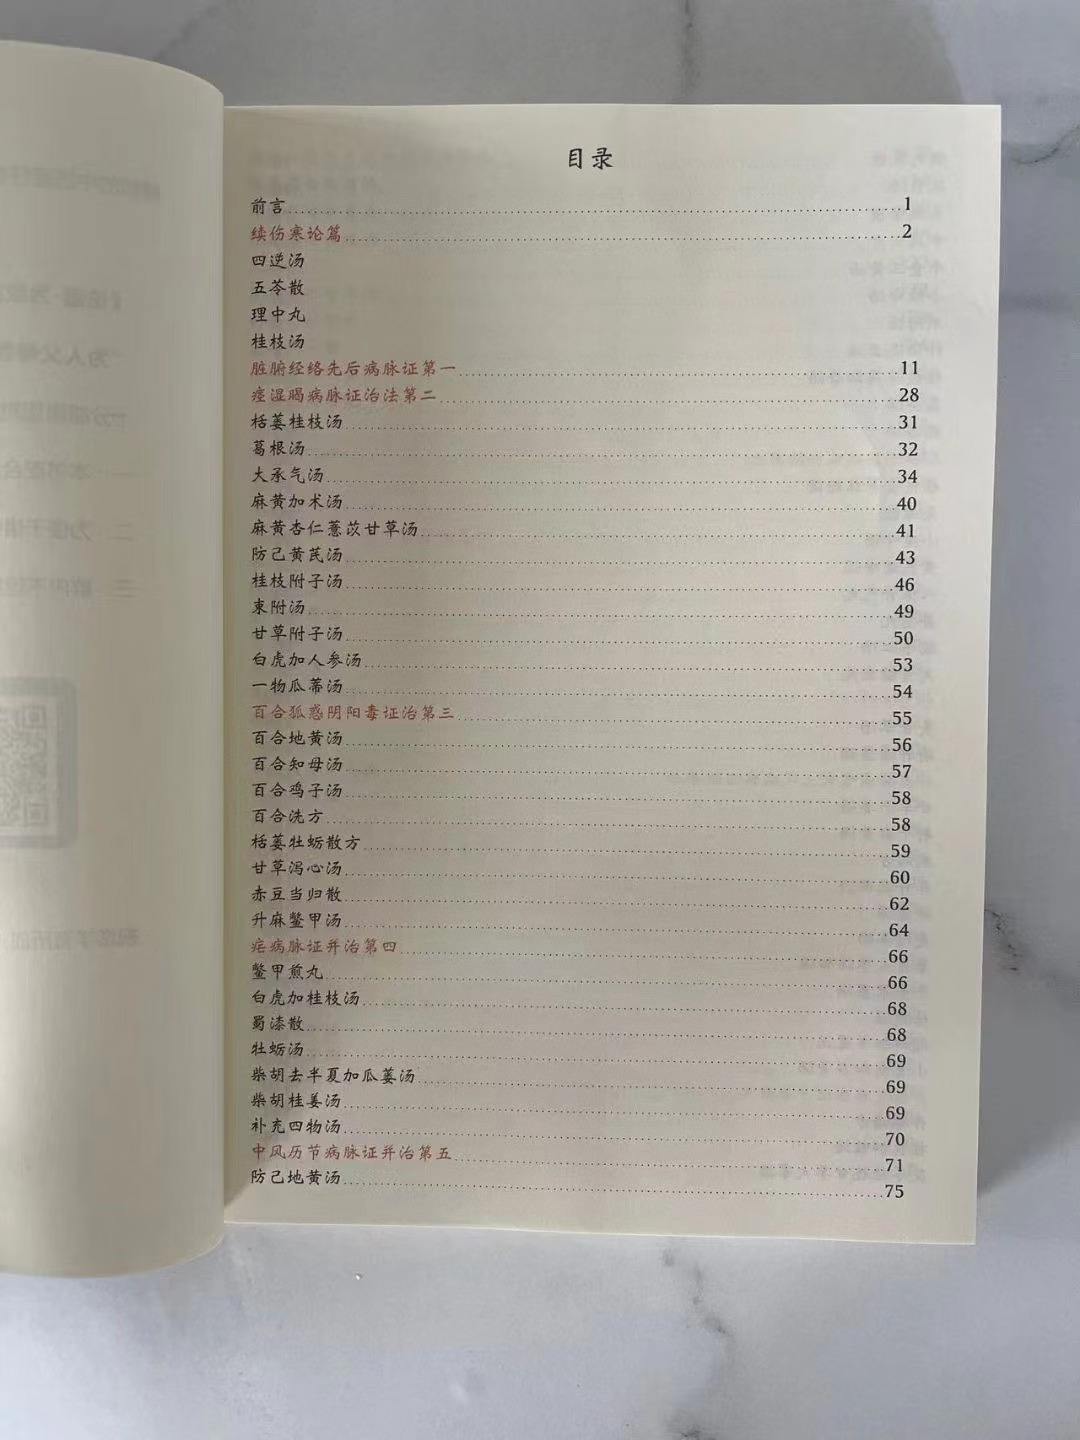 目录
前言 1
续伤寒论篇 2
四逆汤
五苓散
理中丸
桂枝汤
脏腑经络先后病脉证第一 11
痉湿暍病脉证治法第二 28
栝蒌桂枝汤 31
葛根汤 32
大承气汤 34
麻黄加术汤 40
麻黄杏仁薏苡甘草汤 41
防己黄芪汤 43
桂枝附子汤 46
术附汤 49
甘草附子汤 50
白虎加人参汤 53
一物瓜蒂汤 54
百合狐惑阴阳毒证治第三 55
百合地黄汤 56
百合知母汤 57
百合鸡子汤 58
百合洗方 58
栝蒌牡蛎散方 59
甘草泻心汤 60
赤豆当归散 62
升麻鳖甲汤 64
疟病脉证并治第四 66
鳖甲煎丸 66
白虎加桂枝汤 68
蜀漆散 68
牡蛎汤 69
柴胡去半夏加瓜蒌汤 69
柴胡桂姜汤 69
补充四物汤 70
中风历节病脉证并治第五 71
防己地黄汤 75